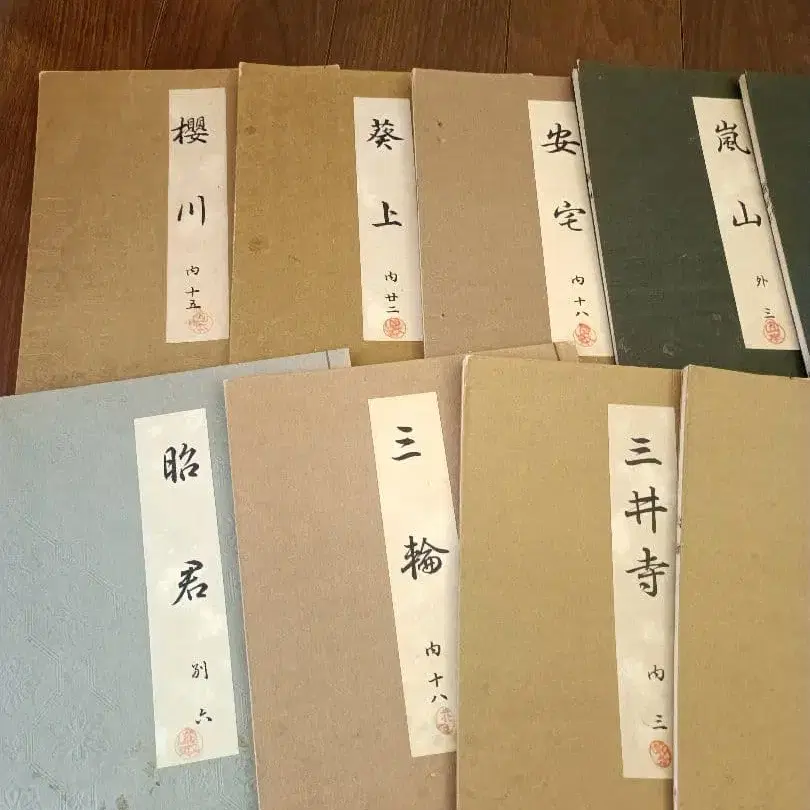 櫻川
内十五
葵上
内廿二
安宅
内十八
嵐山
外三
昭君
別六
三輪
内十八
三井寺
内三